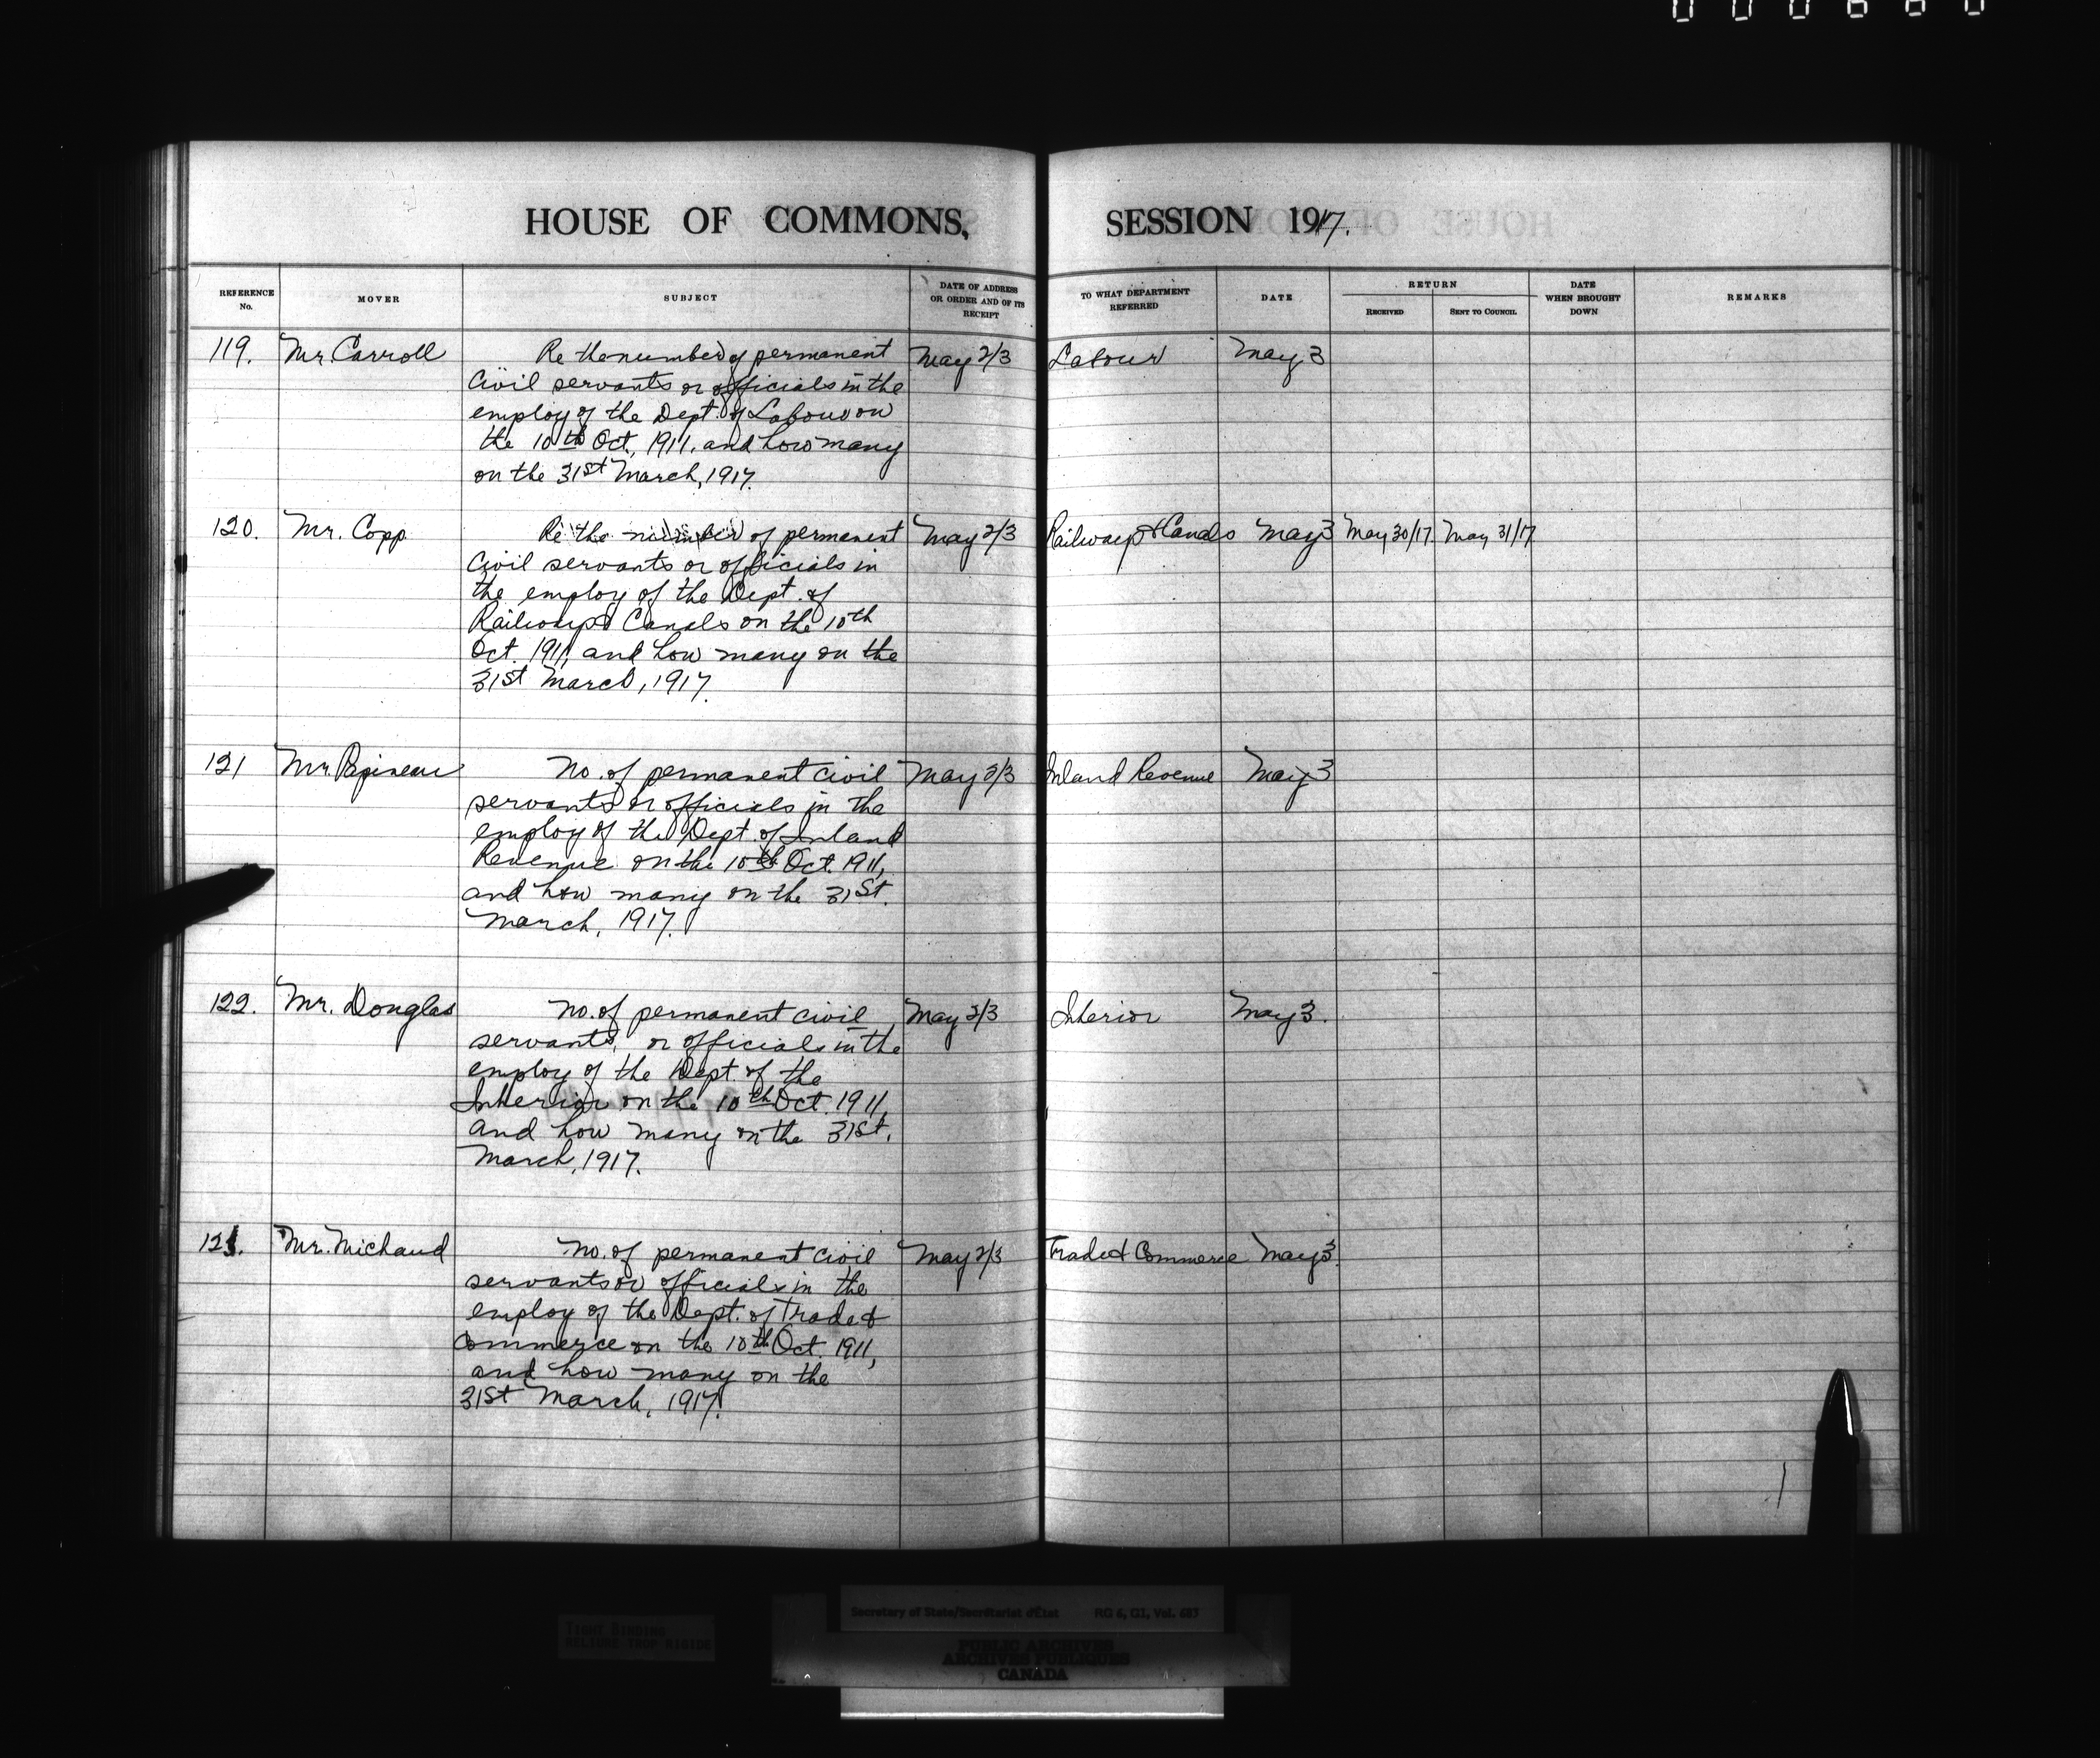 HOUSE OF COMMONS, SESSION 1917.
REFERENCE No. MOVER SUBJECT DATE OF ADDRESS OR ORDER AND OF ITS RECEIPT TO WHAT DEPARTMENT REFERRED DATE RETURN RECEIVED SENT TO COUNCIL DATE WHEN BROUGHT DOWN REMARKS
119. Mr. Carroll Re the number of permanent May 2/3 Labour May 3
Civil servants or officials in the
employ of the Dept. of Labour on
the 10th Oct. 1911. and how many
on the 31st March, 1917.
120. Mr. Copp Re the number of permanent May 2/3 Railways & Canals May 3 May 30/17 May 31/17
Civil servants or officials in
the employ of the Dept. of
Railways & Canals on the 10th
Oct. 1911, and how many on the
31st March, 1917.
121 Mr. Papineau No. of permanent civil May 2/3 Inland Revenue May 3
servants or officials in the
employ of the Dept. of Inland
Revenue on the 10th Oct. 1911,
and how many on the 31st.
March, 1917.
122. Mr. Douglas No. of permanent civil May 2/3 Interior May 3.
servants, or officials in the
employ of the Dept. of the
Interior on the 10th Oct. 1911,
and how many on the 31st.
March, 1917.
123. Mr. Michaud No. of permanent civil May 2/3 Trade & Commerce May 3.
servants or officials in the
employ of the Dept. of Trade &
Commerce on the 10th Oct. 1911,
and how many on the
31st March, 1917.
Secretary of State/Secrétariat d'État RG 6, G1, Vol. 683
TIGHT BINDING
RELIURE TROP RIGIDE
PUBLIC ARCHIVES
ARCHIVES PUBLIQUES
CANADA